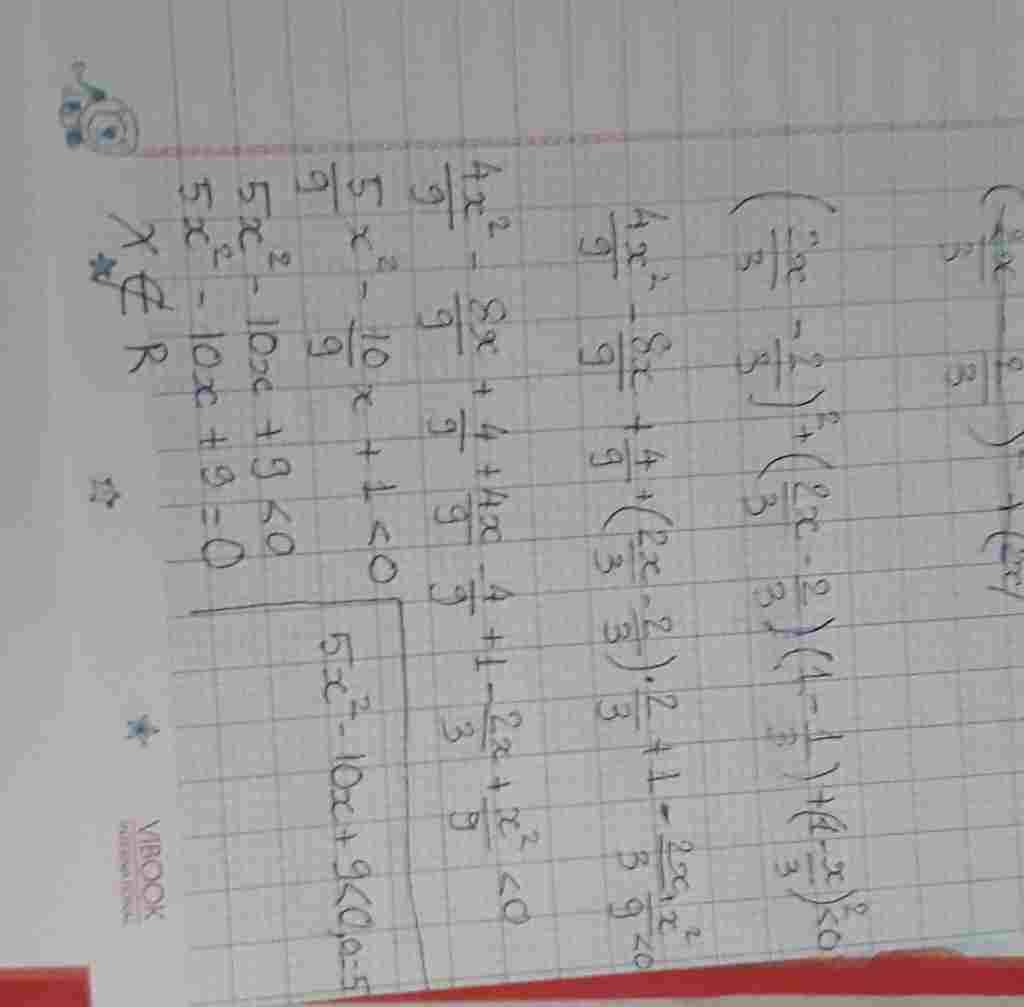 (2x/3 - 2/3)² + (2x)
(2x/3 - 2/3)² + (2x/3 - 2/3)(1 - 1/3) + (1 - x/3)² < 0
4x²/9 - 8x/9 + 4/9 + (2x/3 - 2/3)·2/3 + 1 - 2x/3 + x²/9 < 0
4x²/9 - 8x/9 + 4/9 + 4x/9 - 4/9 + 1 - 2x/3 + x²/9 < 0
5/9 x² - 10/9 x + 1 < 0
5x² - 10x + 9 < 0
5x² - 10x + 9 = 0
x ∉ R
5x² - 10x + 9 < 0, a = 5
VIBOOK